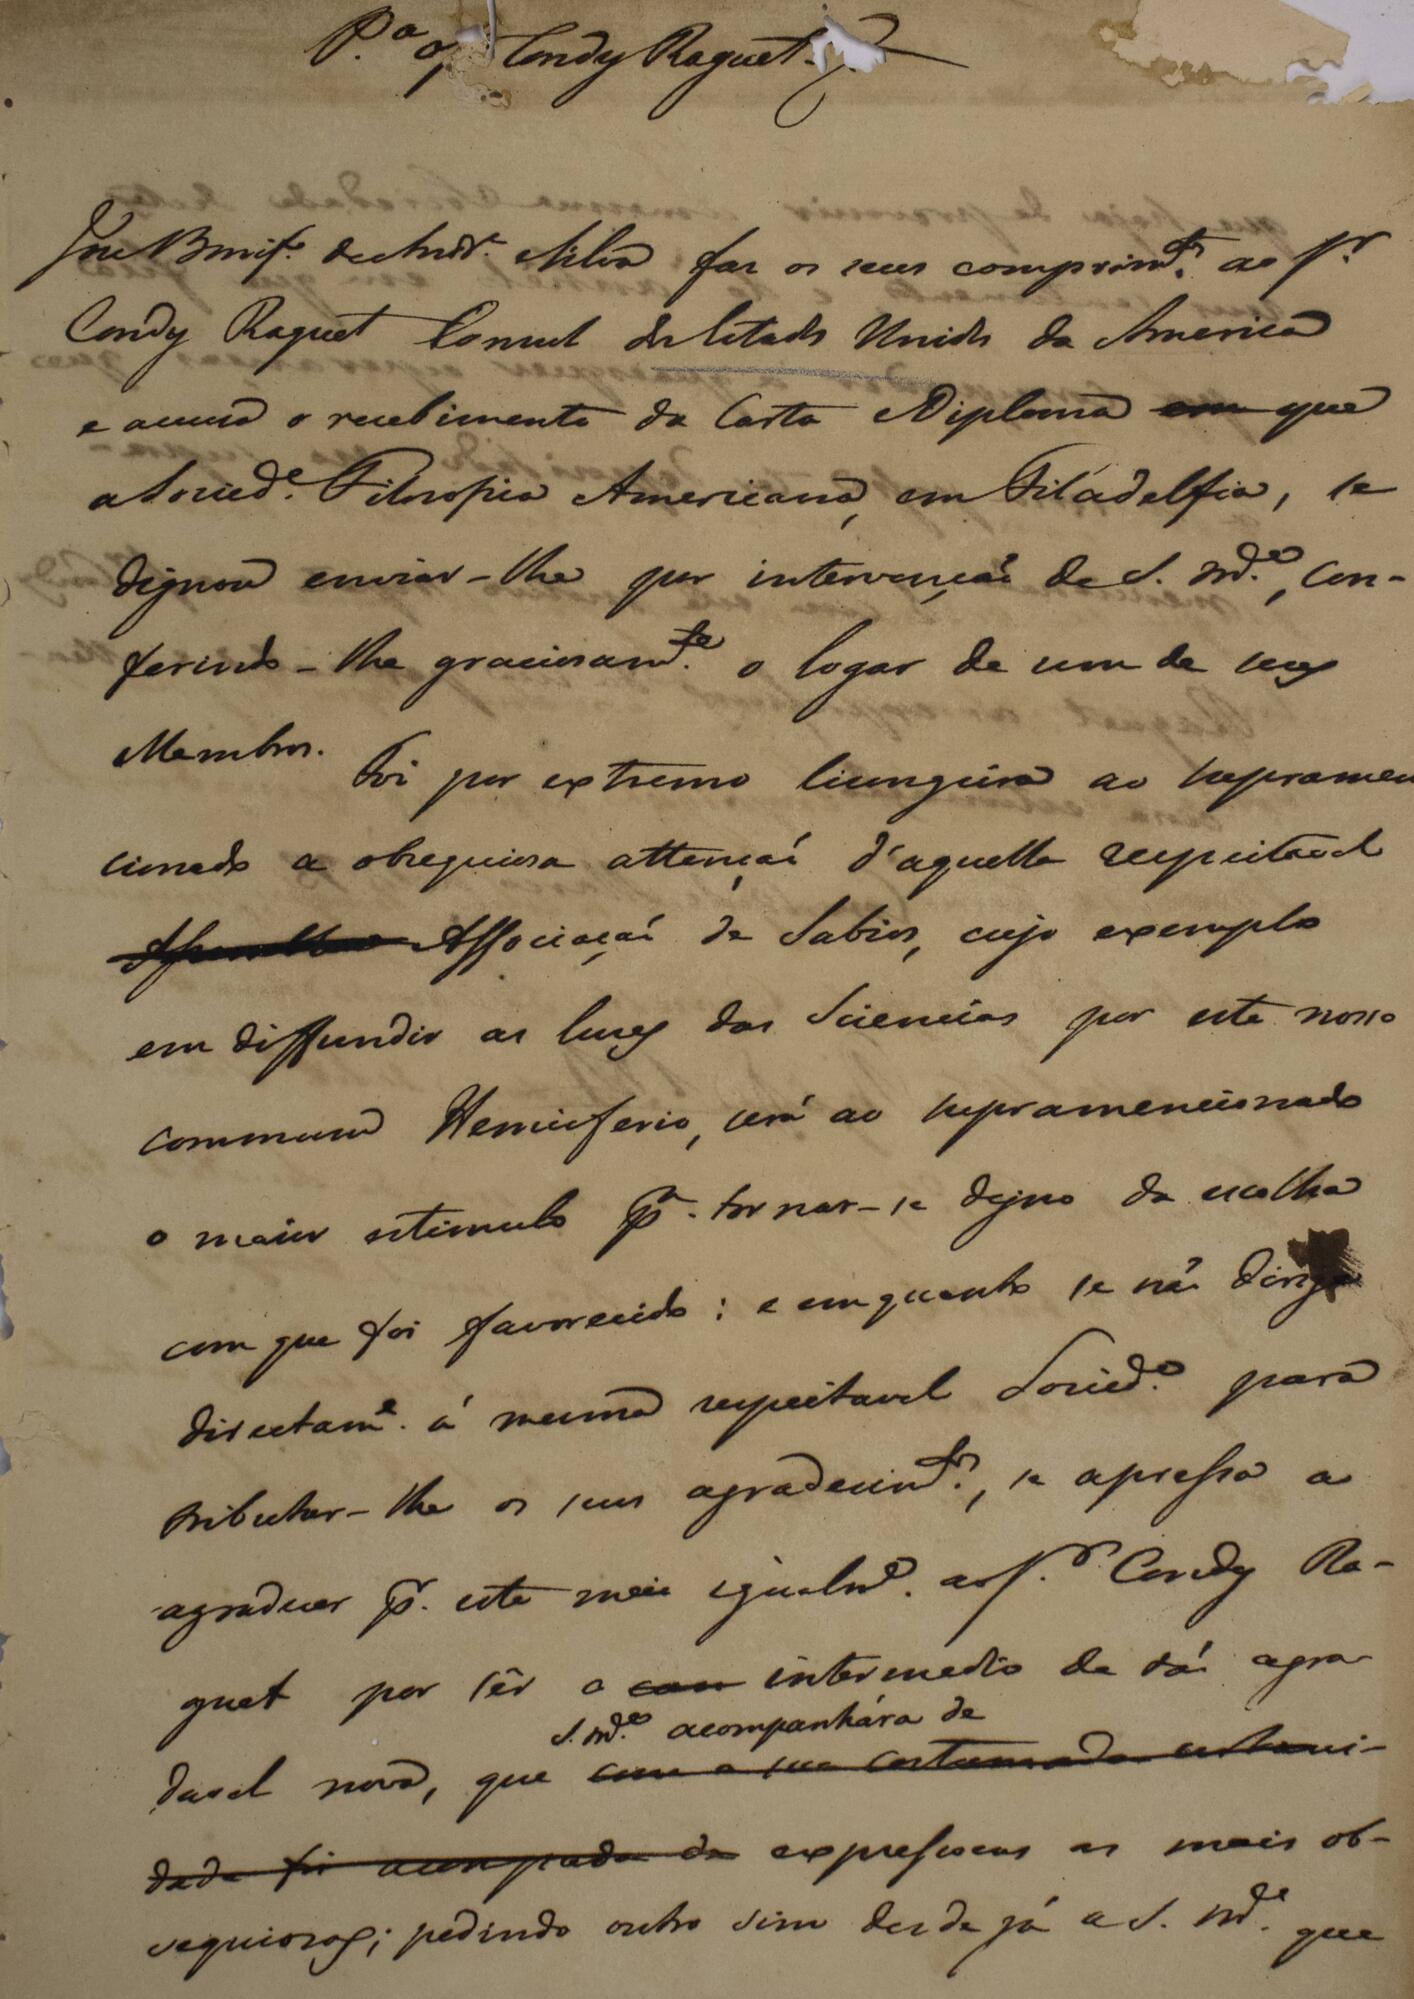 P.ª o Condy Raguet.
Joze Bonif.º de Andr.ª e Silva faz os seus comprim.tos ao Sr.
Condy Raguet Consul dos Estados Unidos da America
e accusa o recebimento da Carta e Diploma em que
a Socied.e Filosofica Americana, em Filadelfia, se
dignou enviar-lhe por intervenção de S. M.ce, con-
ferindo-lhe graciosam.te o logar de um de seus
Membros. Foi por extremo lisongeira ao supramen
cionado a obsequiosa attenção d'aquella respeitavel
Assemblea Associação de Sabios, cujo exemplo
em diffundir as luzes das Sciencias por este nosso
commum Hemisferio, será ao supramencionado
o maior estimulo p.ª tornar-se digno da escolha
com que foi favorecido: e emquanto se não dirige
directam.e á mesma respeitavel Socied.e para
tributar-lhe os seus agradecim.tos, se apressa a
agradecer p.r este meio igualm.e ao S.r Condy Ra-
guet por sêr o intermedio de tão agra-
S. M.ce acompanhára de
davel nova, que com a sua costumada urbani-
dade foi acompada de expressoens as mais ob-
sequiosas; pedindo outro sim desde já a S. M.ce que